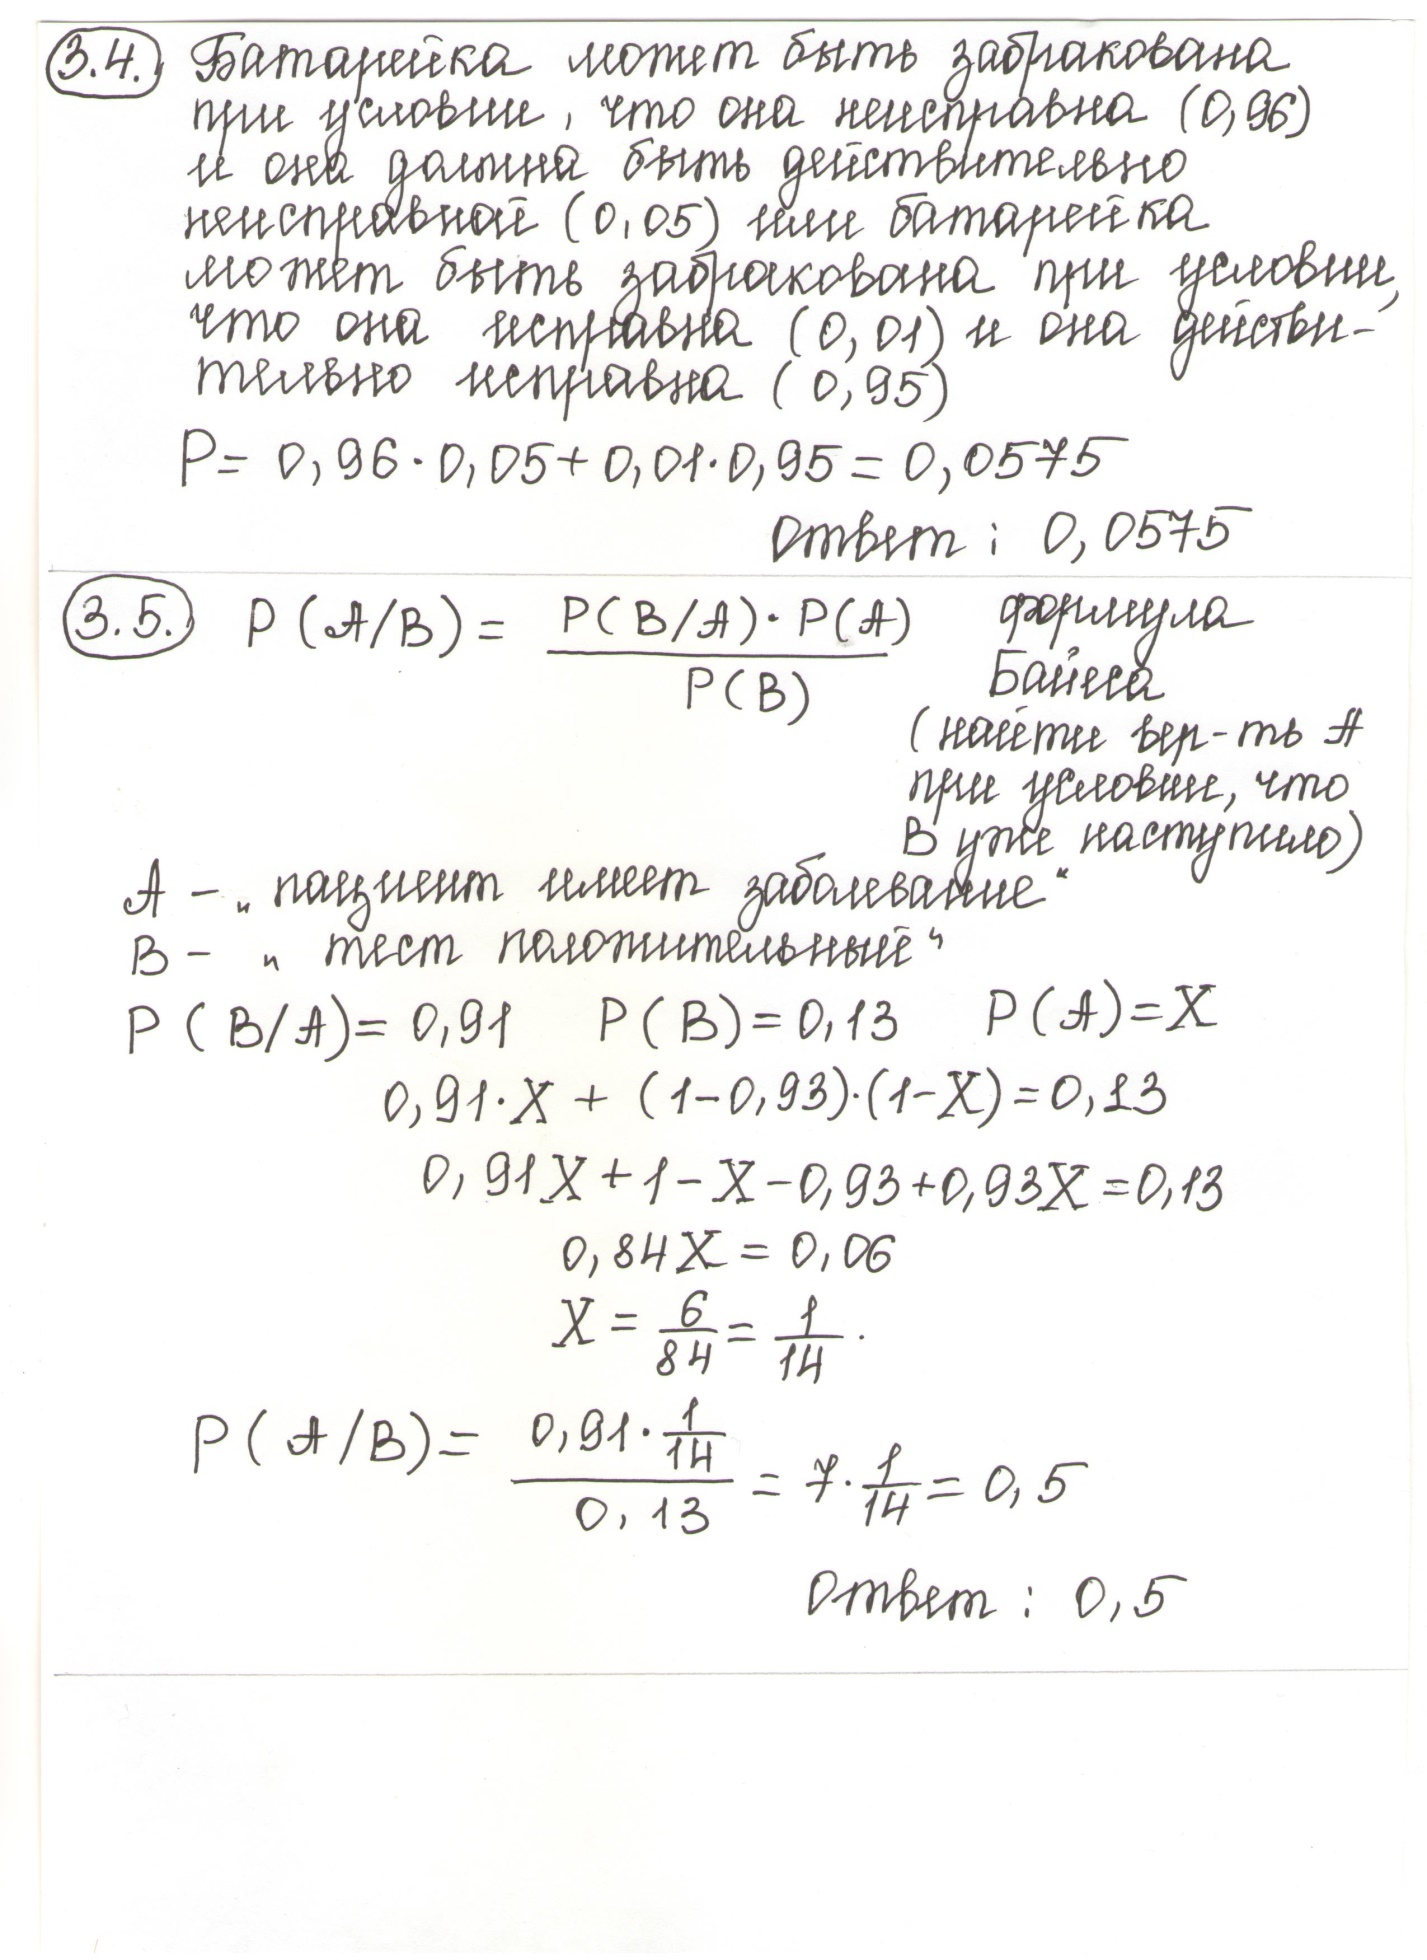 3.4. Батарейка может быть забракована
при условии, что она неисправна (0,96)
и она должна быть действительно
неисправной (0,05) или батарейка
может быть забракована при условии,
что она исправна (0,01) и она действи-
тельно исправна (0,95)
P = 0,96 · 0,05 + 0,01 · 0,95 = 0,0575
Ответ : 0,0575
3.5. P(A/B) = P(B/A) · P(A) / P(B) формула
Байеса
(найти вер-ть A
при условии, что
B уже наступило)
A – „пациент имеет заболевание“
B – „тест положительный“
P(B/A) = 0,91 P(B) = 0,13 P(A) = X
0,91 · X + (1 – 0,93) · (1 – X) = 0,13
0,91X + 1 – X – 0,93 + 0,93X = 0,13
0,84X = 0,06
X = 6/84 = 1/14 .
P(A/B) = 0,91 · 1/14 / 0,13 = 7 · 1/14 = 0,5
Ответ : 0,5